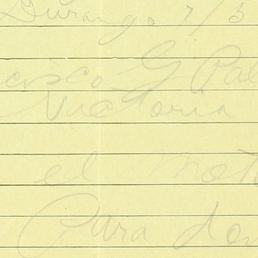 Durango 7/3
cisco G. Pal
Victoria
el moto
Para don